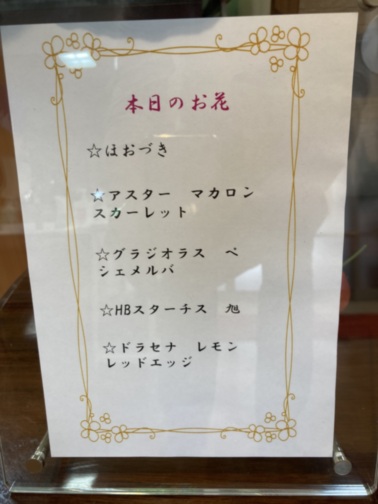 本日のお花
☆ほおづき
☆アスター　マカロン
スカーレット
☆グラジオラス　ペ
シェメルバ
☆HBスターチス　旭
☆ドラセナ　レモン
レッドエッジ